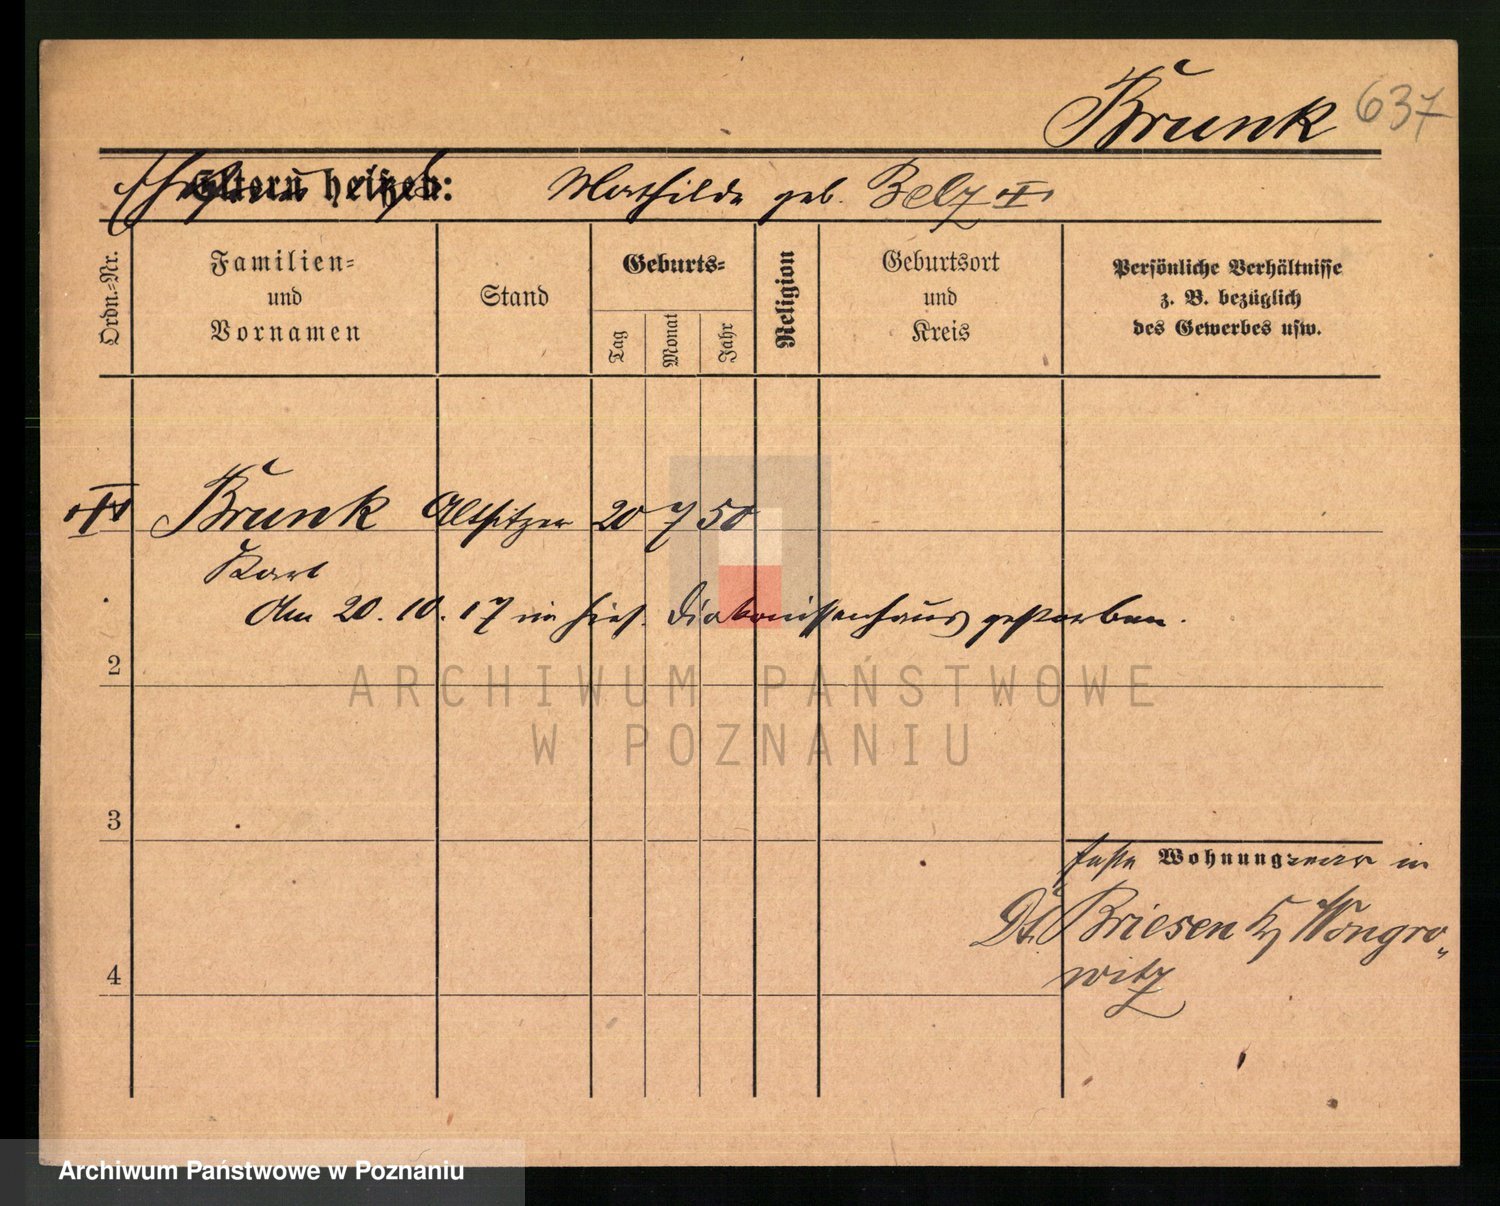 Brunk 637
Eltern heißen: Mathilde geb. Belz
Ordn.=Nr.
Familien=
und
Vornamen
Stand
Geburts=
Tag
Monat
Jahr
Religion
Geburtsort
und
Kreis
Persönliche Verhältnisse
z. B. bezüglich
des Gewerbes usw.
Brunk Altsitzer 20 7 50
Karl
Am 20. 10. 17 im hies. Diakonissenhaus gestorben.
2
ARCHIWUM PAŃSTWOWE
W POZNANIU
3
feste Wohnung war in
Dt. Briesen Kr Wongro-
witz
4
Archiwum Państwowe w Poznaniu